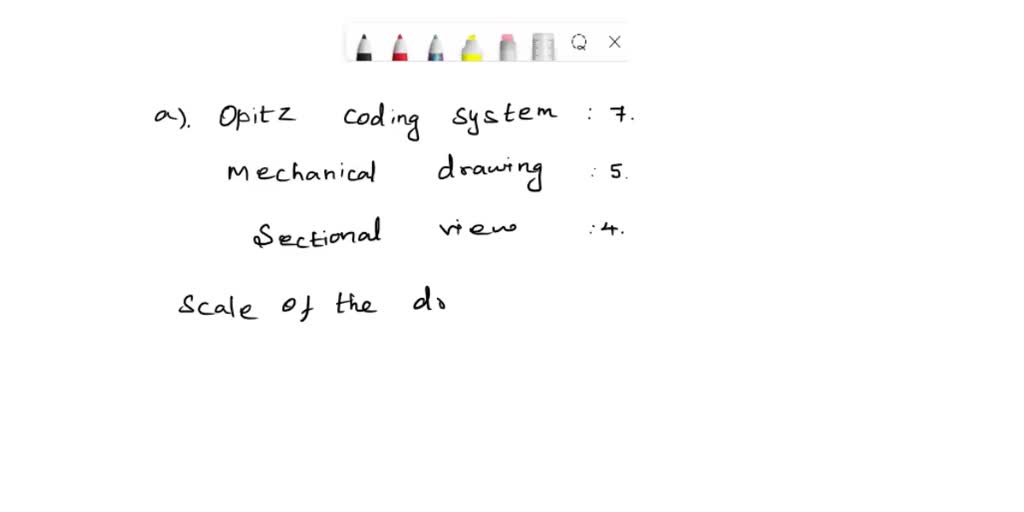 a). Opitz coding system : 7.
Mechanical drawing : 5.
Sectional view : 4.
Scale of the do